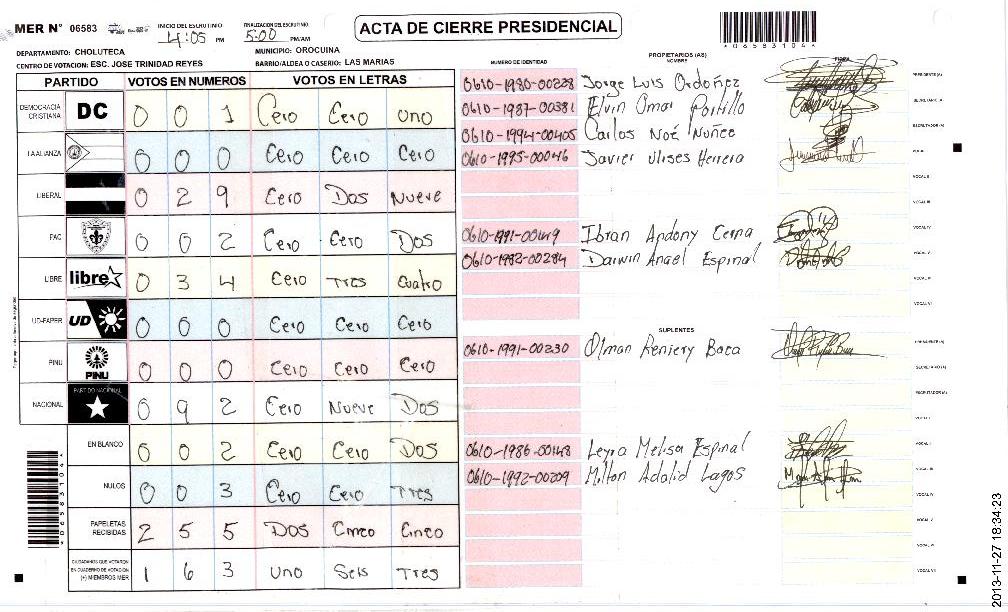 MER N° 06583 INICIO DEL ESCRUTINIO 4:05 PM FINALIZACION DEL ESCRUTINIO 5:00 PM/AM
ACTA DE CIERRE PRESIDENCIAL
*06583104*
DEPARTAMENTO: CHOLUTECA MUNICIPIO: OROCUINA
CENTRO DE VOTACION: ESC. JOSE TRINIDAD REYES BARRIO/ALDEA O CASERIO: LAS MARIAS
PARTIDO VOTOS EN NUMEROS VOTOS EN LETRAS
DEMOCRACIA CRISTIANA DC 0 0 1 Cero Cero uno
LA ALIANZA 0 0 0 Cero Cero Cero
LIBERAL 0 2 9 Cero Dos Nueve
PAC 0 0 2 Cero Cero Dos
LIBRE libre 0 3 4 Cero Tres cuatro
UD-FAPER UD 0 0 0 Cero Cero Cero
PINU PINU 0 0 0 Cero Cero Cero
NACIONAL PARTIDO NACIONAL 0 9 2 Cero Nueve Dos
EN BLANCO 0 0 2 Cero Cero Dos
NULOS 0 0 3 Cero Cero Tres
PAPELETAS RECIBIDAS 2 5 5 Dos Cinco Cinco
CIUDADANOS QUE VOTARON EN CUADERNO DE VOTACION (+) MIEMBROS MER 1 6 3 Uno Seis Tres
*06583104*
PROPIETARIOS (AS)
NUMERO DE IDENTIDAD NOMBRE FIRMA
0610-1980-00228 Jorge Luis Ordoñez PRESIDENTE (A)
0610-1987-00381 Elvin Omar Portillo SECRETARIO (A)
0610-1994-00405 Carlos Noé Nuñez ESCRUTADOR (A)
0610-1995-00046 Javier Ulises Herrera VOCAL I
VOCAL II
VOCAL III
0610-1991-00449 Ibran Andony Cerna VOCAL IV
0610-1982-00284 Darwin Anael Espinal VOCAL V
VOCAL VI
VOCAL VII
SUPLENTES
0610-1991-00230 Olman Reniery Baca PRESIDENTE (A)
SECRETARIO (A)
ESCRUTADOR (A)
VOCAL I
0610-1986-00148 Leyra Melisa Espinal VOCAL II
0610-1992-00209 Milton Adalid Lagos VOCAL III
VOCAL IV
VOCAL V
VOCAL VI
VOCAL VII
2013-11-27 18:34:23